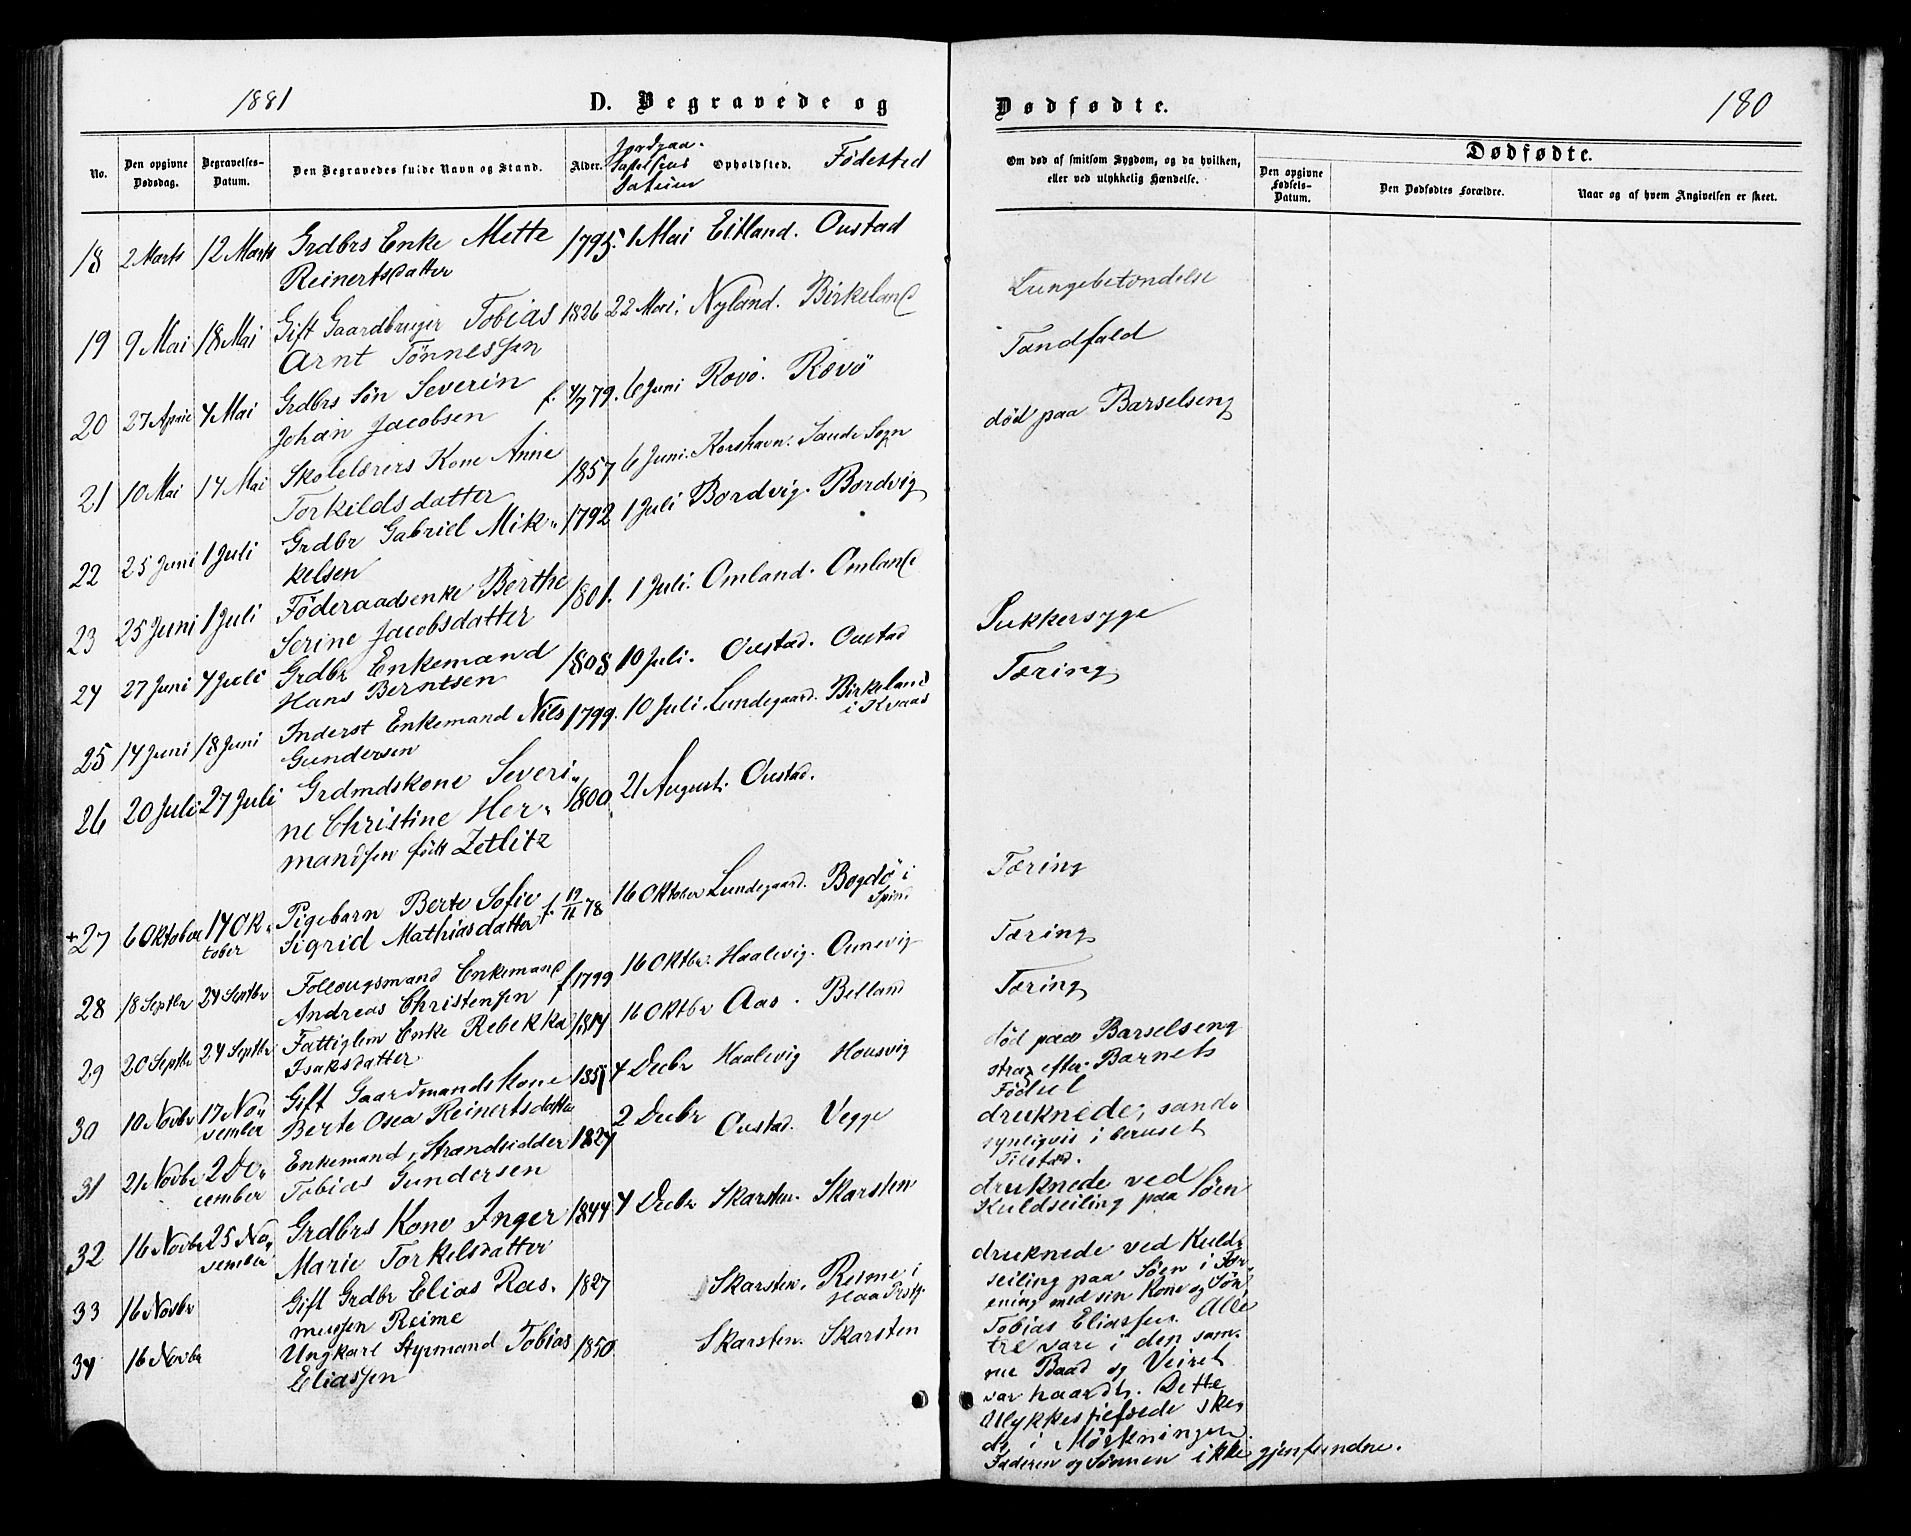 1881
D. Begravede og
Dødfødte.
180
No.
Den opgivne Dødsdag.
Begravelses-Datum.
Den Begravedes fulde Navn og Stand.
Alder.
Opholdsted. Fødested
Om død af smitsom Sygdom, og da hvilken, eller ved ulykkelig Hændelse.
Dødfødte.
Den opgivne Fødsels-Datum.
Den Dødfødtes Forældre.
Naar og af hvem Angivelsen er skeet.
18 2 Marts 12 Marts Grdbrs Enke Mette 1795. 1 Mai Eitland. Oustad
Reinertsdatter
Lungebetændelse
19 9 Mai 18 Mai Gift Gaardbruger Tobias 1826 22 Mai. Nyland. Birkeland
Arnt Tönnessen
Tandfald
20 27 April 4 Mai Grdbrs Søn Severin f. 4/7 79. 6 Juni Rævö. Rævö
Johan Jacobsen
død paa Barselseng
21 10 Mai 14 Mai Skolelærers Kone Anne 1857 6 Juni. Korshavn. Sande Sogn
Torkildsdatter
22 25 Juni 1 Juli Grdbr Gabriel Mik- 1792 1 Juli Bordvig. Bordvig
kelsen
23 25 Juni 1 Juli Föderaadsenke Berthe 1801. 1 Juli. Omland. Omland
Serine Jacobsdatter
Sukkersyge
24 27 Juni 4 Juli Grdbr Enkemand 1808 10 Juli. Oustad. Oustad
Hans Berntsen
Tæring
25 14 Juni 18 Juni Inderst Enkemand Nils 1799. 10 Juli. Lundegaard. Birkeland
Gundersen i Kvaas
26 20 Juli 27 Juli Grdmdskone Severi- 1800 21 August. Oustad.
ne Christine Her-
mandsen født Zetlitz
Tæring
+27 6 Oktober 14 Ok- Pigebarn Berte Sofie f. 12/11 78 16 Oktober Lundegaard. Bogdö i
tober Sigrid Mathiasdatter Spind
Tæring
28 18 Septbr 24 Septbr Follougsmand Enkemand f 1799 16 Oktbr. Haalevig. Ounevig
Andreas Christensen
Tæring
29 20 Septbr 24 Septbr Fattiglem Enke Rebekka 1814 16 Oktbr Aas. Belland
Isaksdatter
død paa Barselseng
strax efter Barnets
Födsel
30 10 Novbr 17 No- Gift Gaardmands Kone 1851 4 Decbr Haalevig Housvig
vember Berte Osea Reinertsdatter
druknede, sand-
synligvis i beruset
Tilstand.
31 21 Novbr 2 De- Enkemand, Strandsidder 1827 2 Decbr Oustad. Vegge
cember Tobias Gundersen
druknede ved
Kuldseiling paa Søen
32 16 Novbr 25 No- Grdbrs Kone Inger 1844 4 Decbr Skarsten. Skarsten
vember Marie Torkelsdatter
druknede ved Kuld-
seiling paa Søen i For-
ening med sin Kone og Søn
33 16 Novbr Gift Grdbr Elias Ras- 1827 Skarsten. Reime i
mussen Reime Haa Prstgj.
Tobias Eliassen. Alle
tre vare i den sam-
me Baad og Veiret
34 16 Novbr Ungkarl Styrmand Tobias 1850 Skarsten. Skarsten
Eliassen
var haardt. Dette
Ulykkestilfælde ske-
de i Mørkningen.
Faderen og Sønnen ikke gjenfundne.